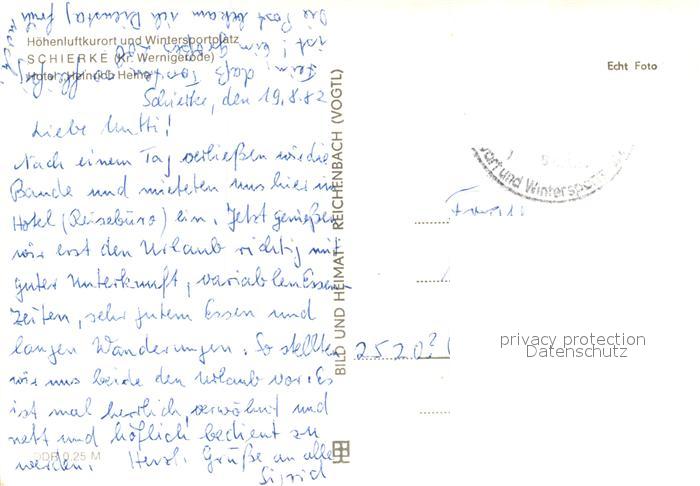 Höhenluftkurort und Wintersportplatz
SCHIERKE (Kr. Wernigerode)
Hotel „Heinrich Heine"
Schierke, den 19.8.82
Liebe Mutti!
Nach einem Tag verließen wir die
Baude und mieteten uns hier im
Hotel (Reisebüro) ein. Jetzt genießen
wir erst den Urlaub richtig mit
guter Unterkunft, variablen Essen
zeiten, sehr gutem Essen und
langen Wanderungen. So stellten
wir uns beide den Urlaub vor. Es
ist mal herrlich, verwöhnt und
nett und höflich bedient zu
werden. Herzl. Grüße an alle
Sigrid
Die Post bekam ich Dienstag früh
DDR 0,25 M
BILD UND HEIMAT REICHENBACH (VOGTL)
Echt Foto
ort und Wintersp
Frau
2520
privacy protection
Datenschutz